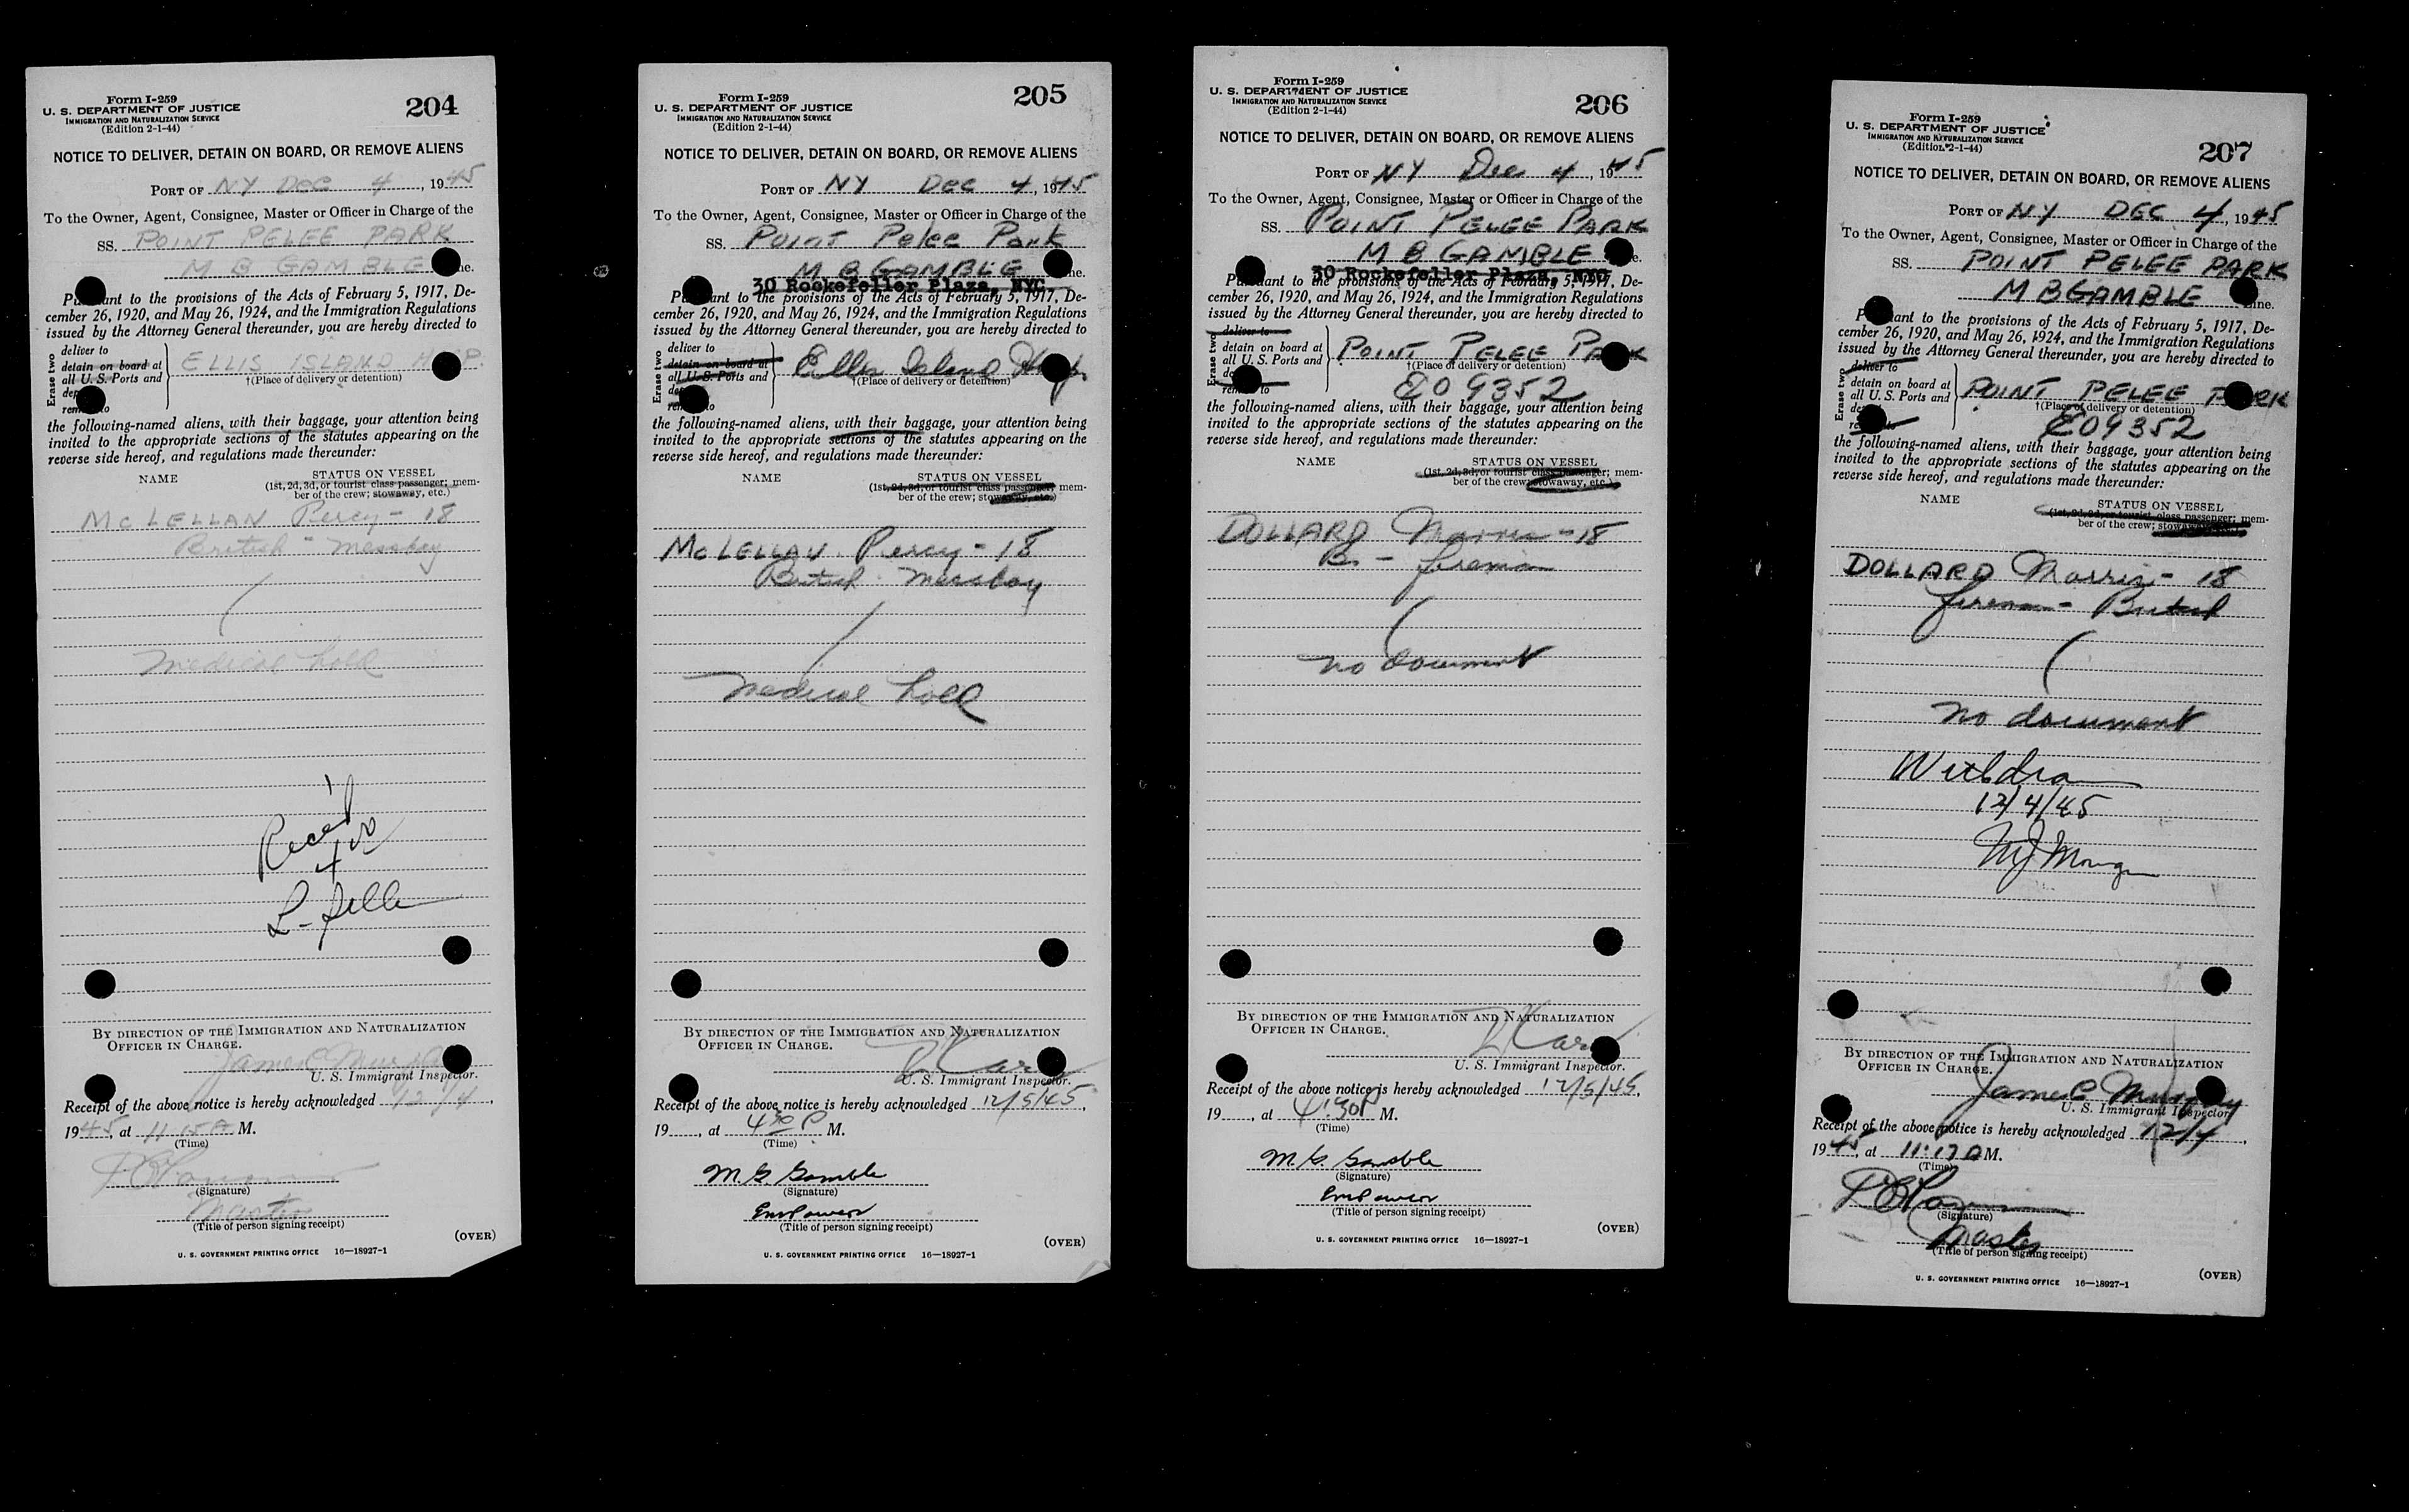 Form I-259
U. S. DEPARTMENT OF JUSTICE
IMMIGRATION AND NATURALIZATION SERVICE
(Edition 2-1-44)
204
NOTICE TO DELIVER, DETAIN ON BOARD, OR REMOVE ALIENS
PORT OF NY DEC 4, 1945
To the Owner, Agent, Consignee, Master or Officer in Charge of the
SS. POINT PELEE PARK
M B GAMBLE
Pursuant to the provisions of the Acts of February 5, 1917, De-
cember 26, 1920, and May 26, 1924, and the Immigration Regulations
issued by the Attorney General thereunder, you are hereby directed to
Erase two
deliver to
detain on board at
all U. S. Ports and
remove to
ELLIS ISLAND HOSP.
†(Place of delivery or detention)
the following-named aliens, with their baggage, your attention being
invited to the appropriate sections of the statutes appearing on the
reverse side hereof, and regulations made thereunder:
NAME
STATUS ON VESSEL
(1st, 2d, 3d, or tourist class passenger; mem-
ber of the crew; stowaway, etc.)
McLELLAN Percy - 18
British - messboy
Medical hold
Rec'd
L-
BY DIRECTION OF THE IMMIGRATION AND NATURALIZATION
OFFICER IN CHARGE.
James C Murphy
U. S. Immigrant Inspector.
Receipt of the above notice is hereby acknowledged 12/4,
1945, at 11 15 A. M.
(Time)
(Signature)
Master
(Title of person signing receipt)
(OVER)
U. S. GOVERNMENT PRINTING OFFICE 16—18927-1
Form I-259
U. S. DEPARTMENT OF JUSTICE
IMMIGRATION AND NATURALIZATION SERVICE
(Edition 2-1-44)
205
NOTICE TO DELIVER, DETAIN ON BOARD, OR REMOVE ALIENS
PORT OF NY Dec 4, 1945
To the Owner, Agent, Consignee, Master or Officer in Charge of the
SS. Point Pelee Park
M B GAMBLE
30 Rockefeller Plaza, NYC
Pursuant to the provisions of the Acts of February 5, 1917, De-
cember 26, 1920, and May 26, 1924, and the Immigration Regulations
issued by the Attorney General thereunder, you are hereby directed to
Erase two
deliver to
detain on board at
all U. S. Ports and
remove to
Ellis Island Hosp
†(Place of delivery or detention)
the following-named aliens, with their baggage, your attention being
invited to the appropriate sections of the statutes appearing on the
reverse side hereof, and regulations made thereunder:
NAME
STATUS ON VESSEL
(1st, 2d, 3d, or tourist class passenger; mem-
ber of the crew; stowaway, etc.)
McLELLAN. Percy - 18
British. Messboy
Medical hold
BY DIRECTION OF THE IMMIGRATION AND NATURALIZATION
OFFICER IN CHARGE.
U. S. Immigrant Inspector.
Receipt of the above notice is hereby acknowledged 12/5/45,
19, at 4 30 P M.
(Time)
M. G. Gamble
(Signature)
(Title of person signing receipt)
(OVER)
U. S. GOVERNMENT PRINTING OFFICE 16—18927-1
Form I-259
U. S. DEPARTMENT OF JUSTICE
IMMIGRATION AND NATURALIZATION SERVICE
(Edition 2-1-44)
206
NOTICE TO DELIVER, DETAIN ON BOARD, OR REMOVE ALIENS
PORT OF NY Dec 4, 1945
To the Owner, Agent, Consignee, Master or Officer in Charge of the
SS. POINT PELEE PARK
M B GAMBLE
30 Rockefeller Plaza, NYC
Pursuant to the provisions of the Acts of February 5, 1917, De-
cember 26, 1920, and May 26, 1924, and the Immigration Regulations
issued by the Attorney General thereunder, you are hereby directed to
Erase two
deliver to
detain on board at
all U. S. Ports and
remove to
POINT PELEE PARK
†(Place of delivery or detention)
E09352
the following-named aliens, with their baggage, your attention being
invited to the appropriate sections of the statutes appearing on the
reverse side hereof, and regulations made thereunder:
NAME
STATUS ON VESSEL
(1st, 2d, 3d, or tourist class passenger; mem-
ber of the crew; stowaway, etc.)
DOLLARD Morris - 18
B. - fireman
no document
BY DIRECTION OF THE IMMIGRATION AND NATURALIZATION
OFFICER IN CHARGE.
U. S. Immigrant Inspector.
Receipt of the above notice is hereby acknowledged 12/5/45,
19, at 4:30P M.
(Time)
M. G. Gamble
(Signature)
(Title of person signing receipt)
(OVER)
U. S. GOVERNMENT PRINTING OFFICE 16—18927-1
Form I-259
U. S. DEPARTMENT OF JUSTICE
IMMIGRATION AND NATURALIZATION SERVICE
(Edition 2-1-44)
207
NOTICE TO DELIVER, DETAIN ON BOARD, OR REMOVE ALIENS
PORT OF NY DEC 4, 1945
To the Owner, Agent, Consignee, Master or Officer in Charge of the
SS. POINT PELEE PARK
M B GAMBLE Line.
Pursuant to the provisions of the Acts of February 5, 1917, De-
cember 26, 1920, and May 26, 1924, and the Immigration Regulations
issued by the Attorney General thereunder, you are hereby directed to
Erase two
deliver to
detain on board at
all U. S. Ports and
POINT PELEE PARK
†(Place of delivery or detention)
E09352
the following-named aliens, with their baggage, your attention being
invited to the appropriate sections of the statutes appearing on the
reverse side hereof, and regulations made thereunder:
NAME
STATUS ON VESSEL
(1st, 2d, 3d, or tourist class passenger; mem-
ber of the crew; stowaway, etc.)
DOLLARD Morris - 18
fireman - British
no document
Withdrawn
12/4/45
BY DIRECTION OF THE IMMIGRATION AND NATURALIZATION
OFFICER IN CHARGE.
James C Murphy
U. S. Immigrant Inspector
Receipt of the above notice is hereby acknowledged 12/4,
1945, at 11:17 A M.
(Time)
(Signature)
Master
(Title of person signing receipt)
(OVER)
U. S. GOVERNMENT PRINTING OFFICE 16—18927-1